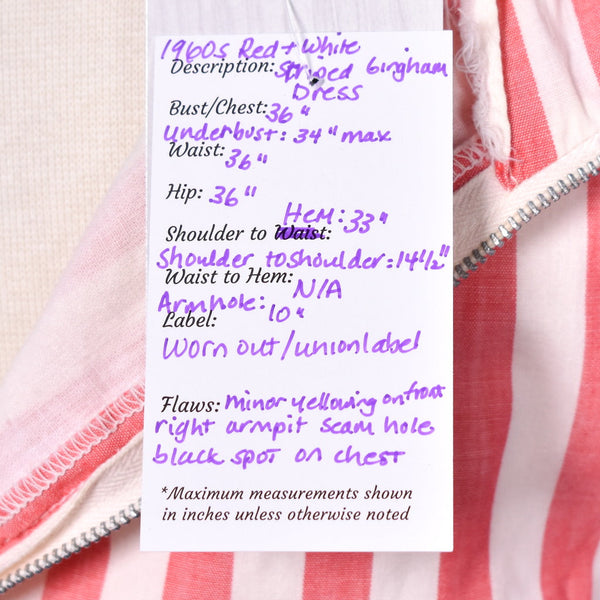 1960s Red + White
Description: Striped Gingham
Dress
Bust/Chest: 36"
Underbust: 34" max
Waist: 36"
Hip: 36"
Hem: 33"
Shoulder to Waist:
Shoulder to shoulder: 14 1/2"
Waist to Hem: N/A
Armhole: 10"
Label:
Worn out/union label
Flaws: minor yellowing on front
right armpit seam hole
black spot on chest
*Maximum measurements shown
in inches unless otherwise noted